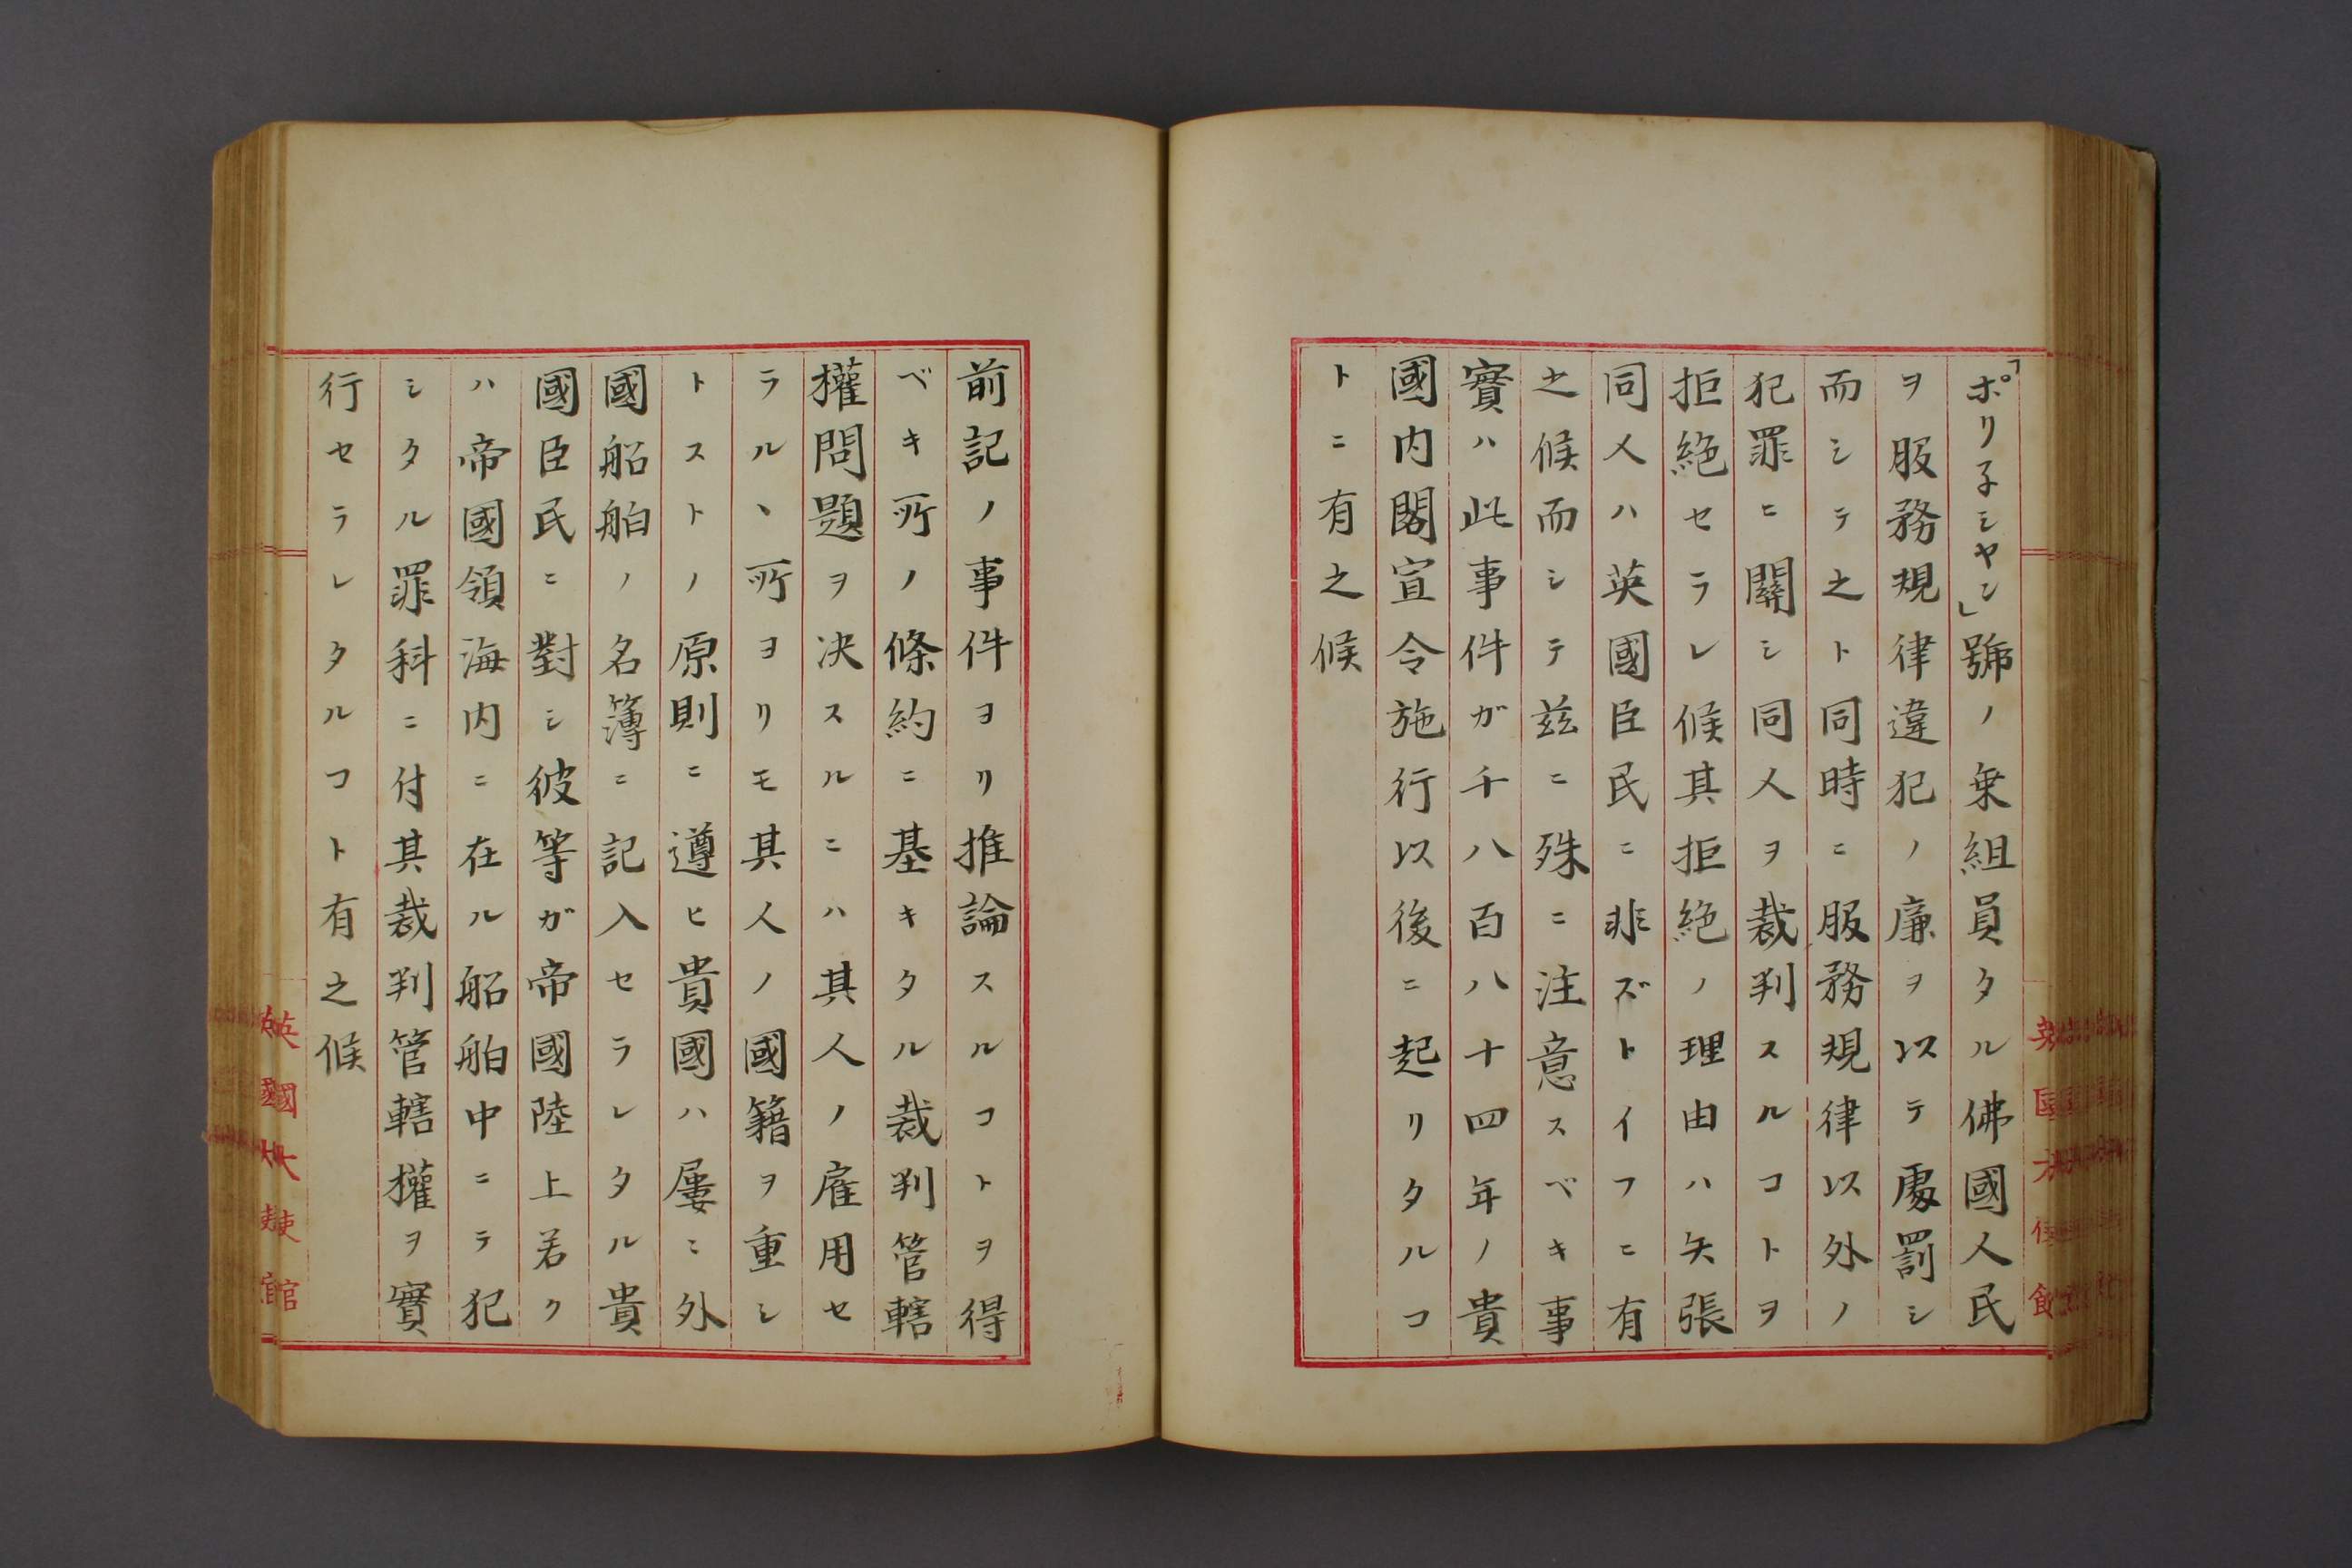 「ポリ子シヤン」號ノ乗組員タル佛國人民
ヲ服務規律違犯ノ廉ヲ以テ處罰シ
而シテ之ト同時ニ服務規律以外ノ
犯罪ニ關シ同人ヲ裁判スルコトヲ
拒絶セラレ候其拒絶ノ理由ハ矢張
同人ハ英國臣民ニ非ズトイフニ有
之候而シテ茲ニ殊ニ注意スベキ事
實ハ此事件ガ千八百八十四年ノ貴
國内閣宣令施行以後ニ起リタルコ
トニ有之候
前記ノ事件ヨリ推論スルコトヲ得
ベキ所ノ條約ニ基キタル裁判管轄
權問題ヲ決スルニハ其人ノ雇用セ
ラルヽ所ヨリモ其人ノ國籍ヲ重シ
トストノ原則ニ遵ヒ貴國ハ屢〻外
國船舶ノ名簿ニ記入セラレタル貴
國臣民ニ對シ彼等ガ帝國陸上若ク
ハ帝國領海内ニ在ル船舶中ニテ犯
シタル罪科ニ付其裁判管轄權ヲ實
行セラレタルコト有之候